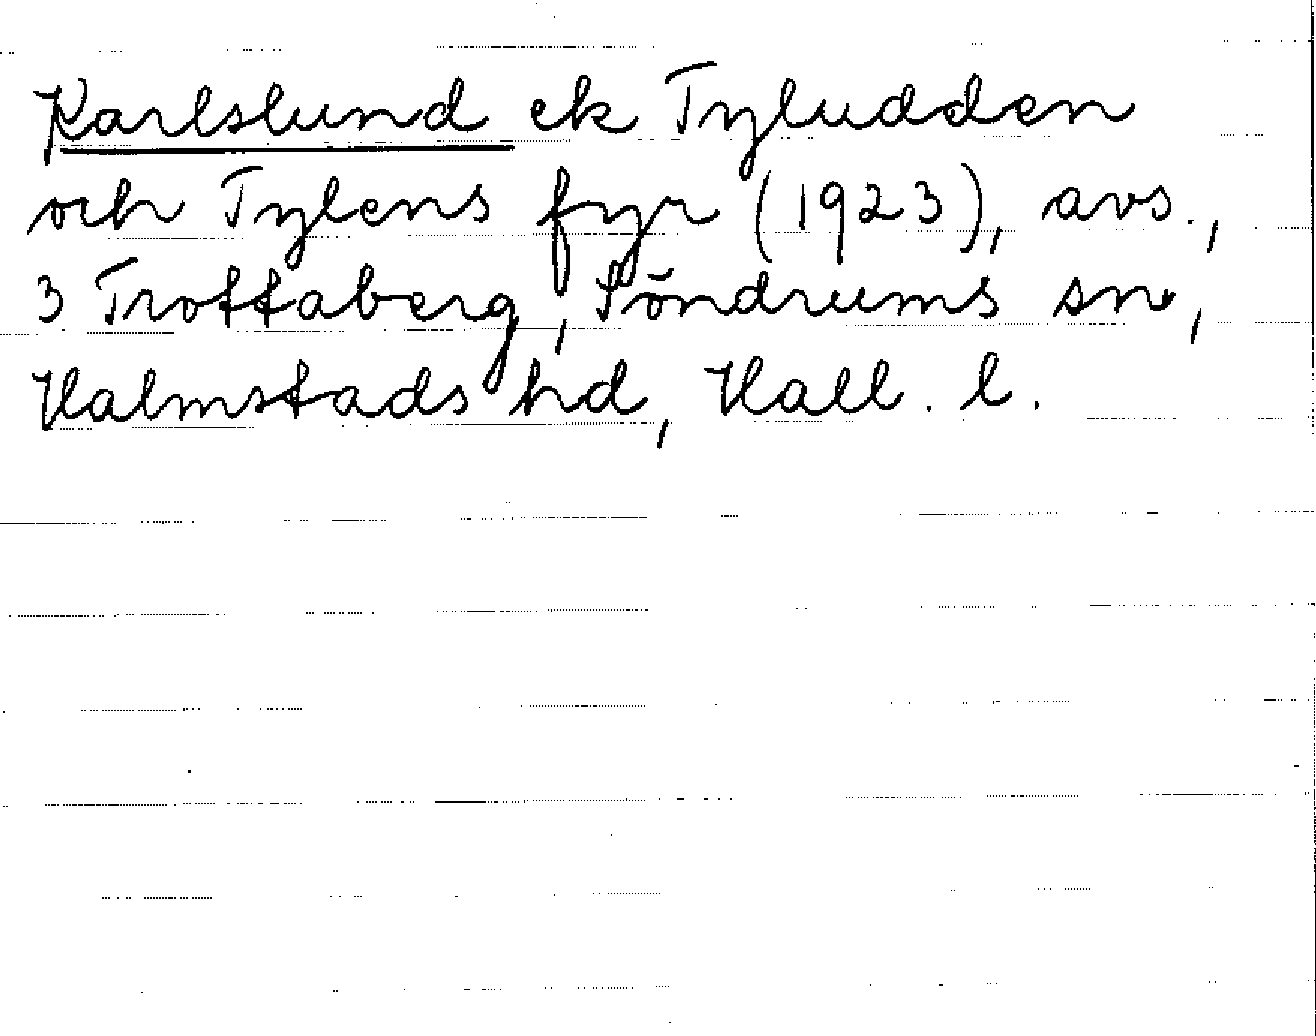 Karlslund ek Tyludden
och Tylens fyr (1923), avs.,
3 Trottaberg, Söndrums sn,
Halmstads hd, Hall. l.